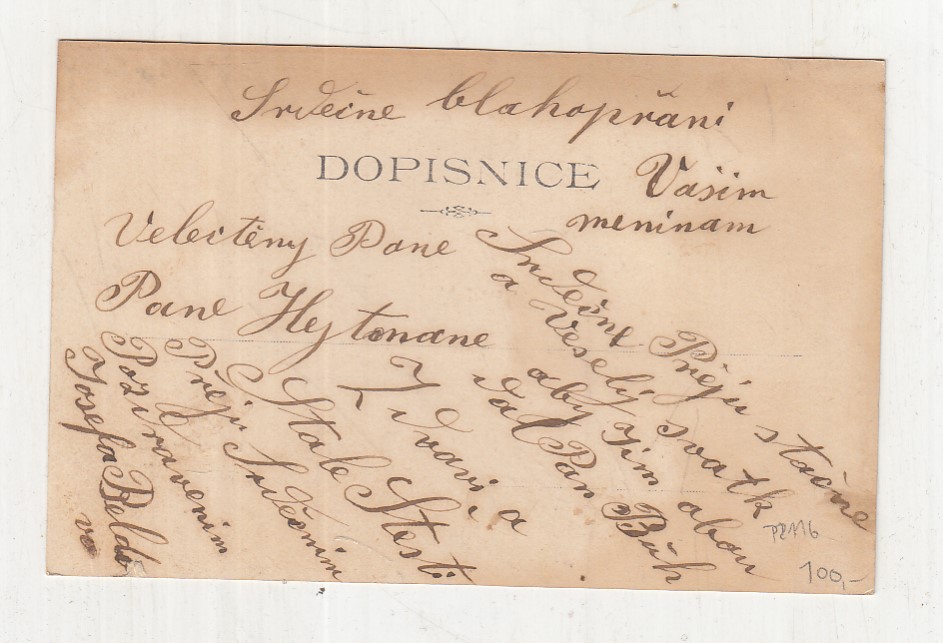 Srdečne blahopřani
DOPISNICE
Vašim
meninam
Velectěny Pane
Pane Hejtmane
Srdečne Přeju stačne
a Veselý svatk
aby Jim obom
dal Pan Bůh
Zdraví a
Stale Štesti
Přeju Srdečnim
Pozdravenim
Josefa Beldo
va
PZ116
100,-